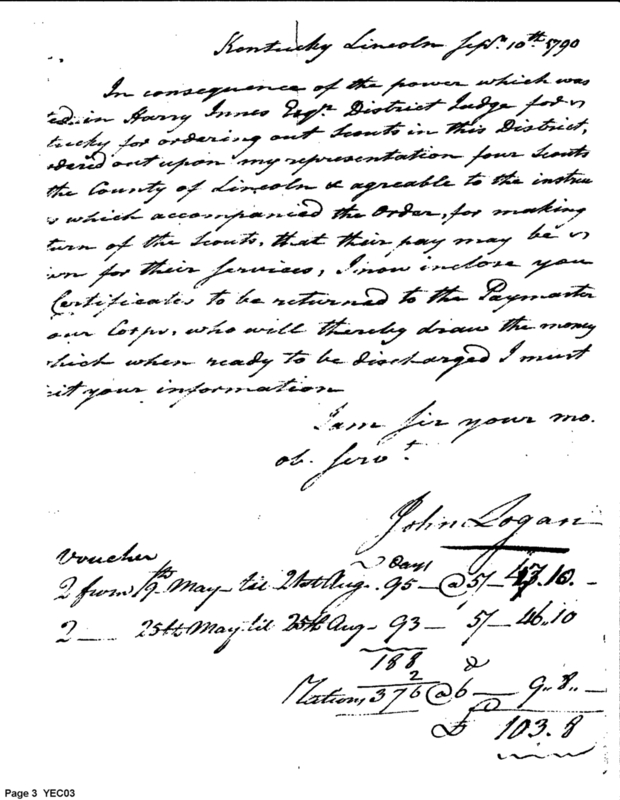 Kentucky Lincoln Sepr. 10th. 1790
In consequence of the power which was
ed in Harry Innes Esqr. District Judge for
tucky for ordering out Scouts in this District,
dered out upon my representation four Scouts
the County of Lincoln & agreable to the instru
s which accompanied the Order, for making
turn of the Scouts, that their pay may be
wn for their Services, I now inclose you
Certificates to be returned to the Paymaster
our Corps, who will thereby draw the money
hich when ready to be discharged I must
it your information
I am Sir your mo.
ob. Servt.
John Logan
Voucher
Days
2 from 19th May til 21st Aug. 95 - @ 5/- 47.10. -
2 — 25th May til 25th Aug - 93 - 5/- 46..10
188
2
Rations 376 @ 6 — 9..8.. —
£ 103.8
Page 3 YEC03